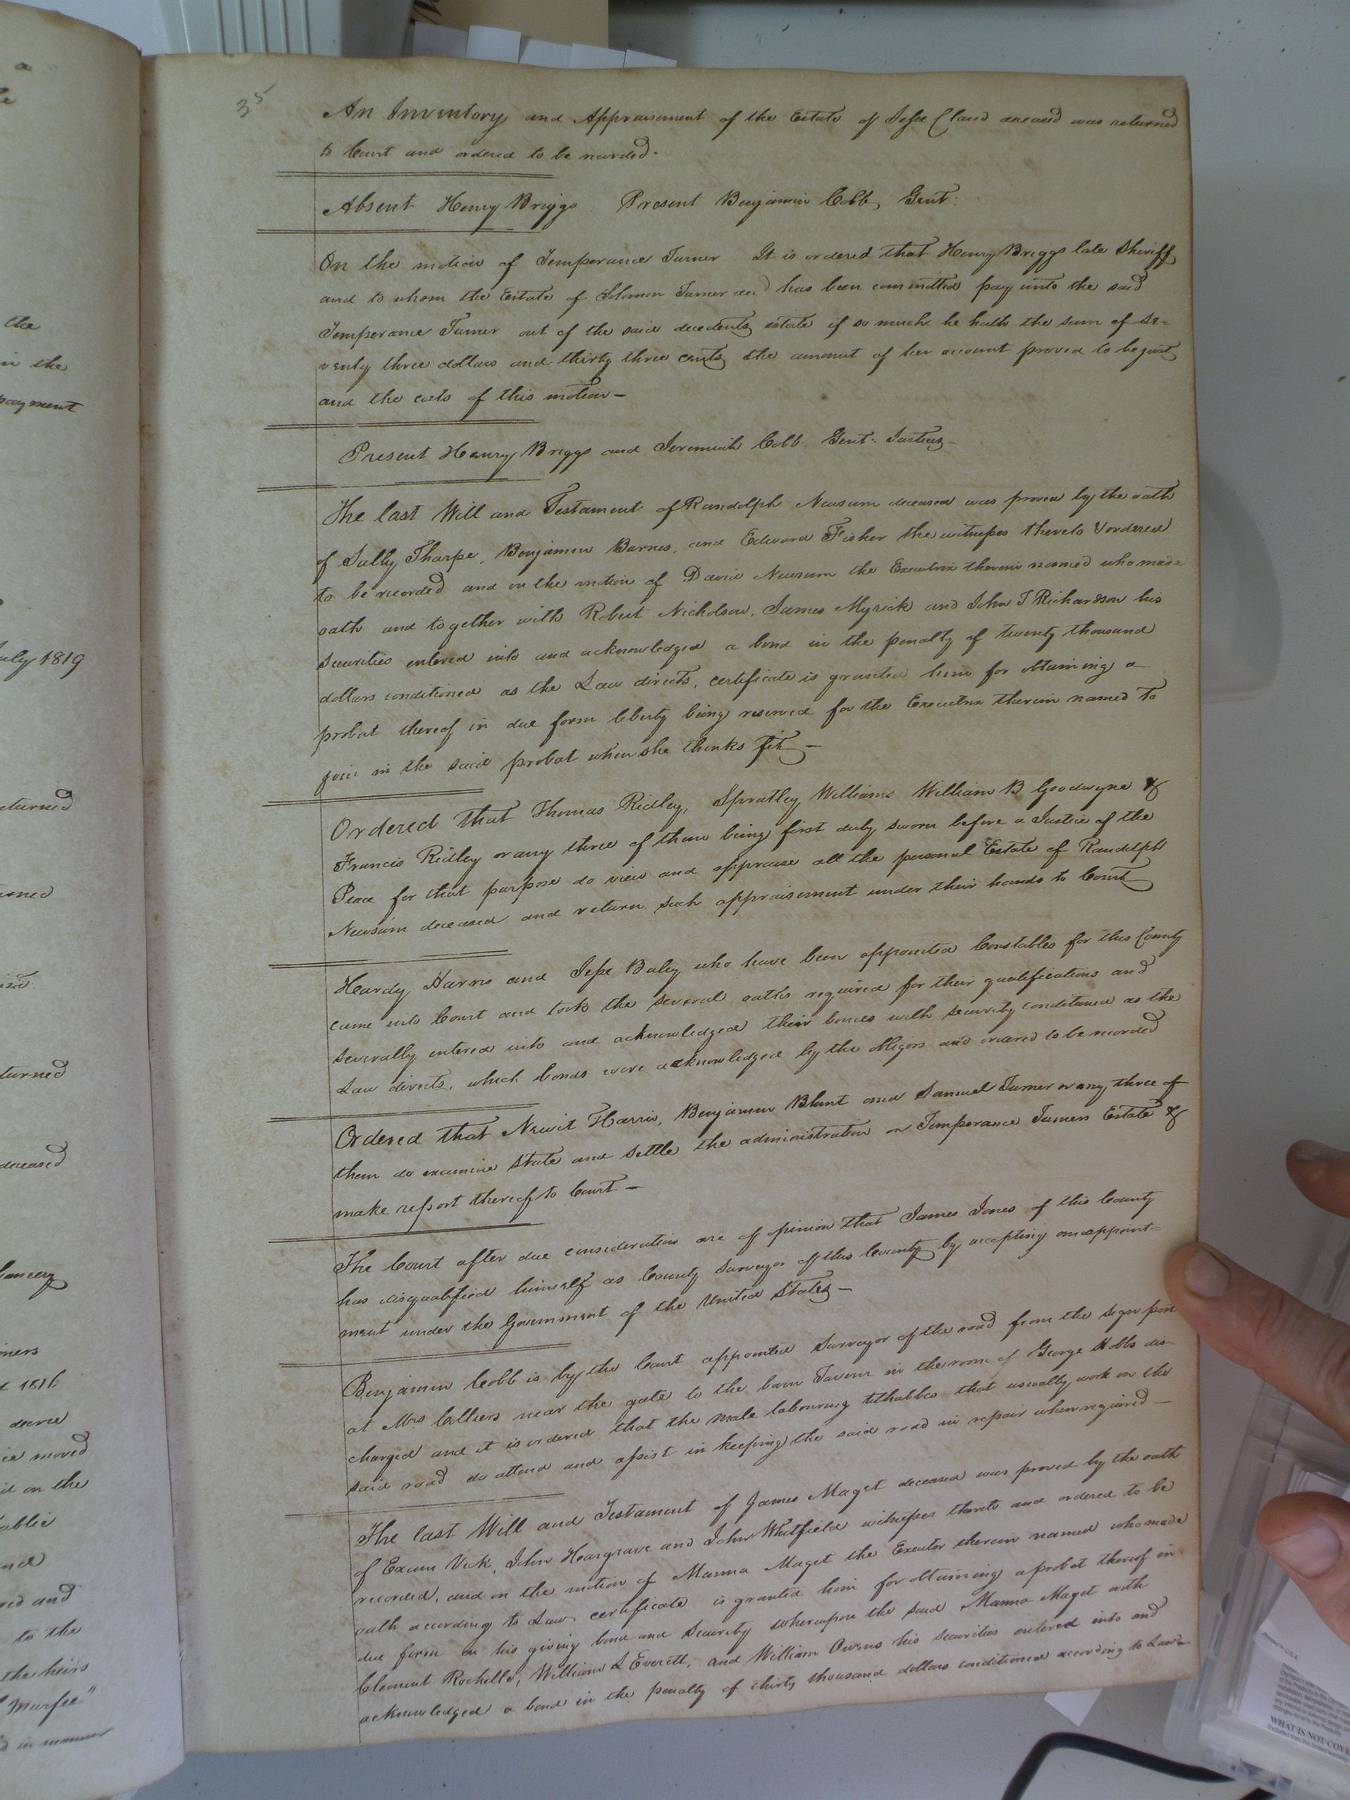 35
An Inventory and Appraisement of the Estate of Jesse Claud deceased was returned
to Court and ordered to be recorded.
Absent Henry Briggs Present Benjamin Cobb, Gent.
On the motion of Temperance Turner It is ordered that Henry Briggs late Sheriff
and to whom the Estate of Solomon Turner decd has been committed pay unto the said
Temperance Turner out of the said decedents estate if so much he hath the sum of se-
venty three dollars and thirty three cents the amount of her account proved to be just
and the costs of this motion –
Present Henry Briggs and Jeremiah Cobb Gent. Justices –
The last Will and Testament of Randolph Newsum deceased was proved by the oath
of Sally Tharpe, Benjamin Barnes, and Edward Fisher the witnesses thereto & ordered
to be recorded and on the motion of David Newsum the Executor therein named who made
oath and together with Robert Nicholson, James Myrick and John T Richardson his
securities entered into and acknowledged a bond in the penalty of twenty thousand
dollars conditioned as the Law directs, certificate is granted him for obtaining a
probat thereof in due form liberty being reserved for the Executrix therein named to
join in the said probat when she thinks fit –
Ordered that Thomas Ridley, Spratley Williams William B Goodwyne &
Francis Ridley or any three of them being first duly sworn before a Justice of the
Peace for that purpose do view and appraise all the personal Estate of Randolph
Newsum deceased and return such appraisement under their hands to Court
Hardy Harris and Jesse Baley who have been appointed Constables for this County
came into Court and took the several oaths required for their qualifications and
severally entered into and acknowledged their bonds with security conditioned as the
Law directs, which bonds were acknowledged by the obligors and ordered to be recorded
Ordered that Newit Harris, Benjamin Blunt and Samuel Turner or any three of
them do examine state and settle the administration on Temperance Turners Estate &
make report thereof to Court –
The Court after due consideration are of opinion that James Jones of this County
has disqualified himself as County Surveyor of this County by accepting an appoint-
ment under the Government of the United States –
Benjamin Cobb is by the Court appointed Surveyor of the road from the sign post
at Mrs Colliers near the gate to the burn Tavern in the room of George Hobbs dis-
charged and it is ordered that the male labouring tithables that usually work on the
said road do attend and assist in keeping the said road in repair when required –
The last Will and Testament of James Maget deceased was proved by the oath
of Exum Vick, John Hargrave and John Whitfield witnesses thereto and ordered to be
recorded, and on the motion of Manna Maget the Executor therein named who made
oath according to Law, certificate is granted him for obtaining a probat thereof in
due form on his giving bond and security whereupon the said Manna Maget with
Clement Rochelle, William L Everett, and William Owens his securities entered into and
acknowledged a bond in the penalty of thirty thousand dollars conditioned according to Law
the
in the
payment
July 1819
returned
turned
deceased
1816
decree
moved
on the
and
to the
the heirs
in manner
WHAT IS NOT COVE